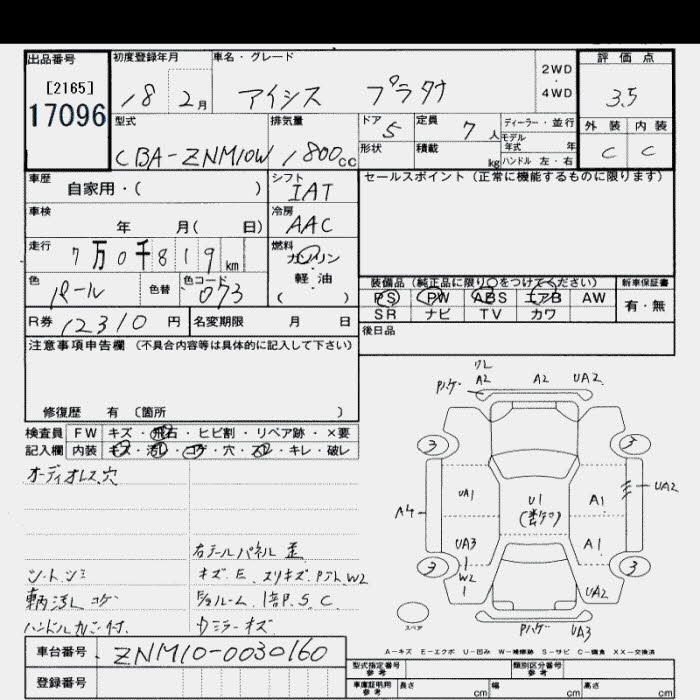 出品番号 初度登録年月 車名・グレード 評価点
[2165] 2WD
・
17096 18 2月 アイシス プラタナ 4WD 3.5
型式 排気量 ドア 5 定員 7人 ディーラー・並行 外装 内装
モデル年式 年
CBA-ZNM10W 1800cc 形状 積載 kg ハンドル 左・右 C C
車歴 自家用・( ) シフト IAT セールスポイント(正常に機能するものに限ります)
車検 年 月( 日) 冷房 AAC
走行 7万0千819km 燃料 ガソリン
・
軽油
( )
色 パール 色替 色コード 073 装備品(純正品に限り○をつけてください) 新車保証書
PS PW ABS エアB AW 有・無
SR ナビ TV カワ
R券 12310円 名変期限 月 日
後日品
注意事項申告欄(不具合内容等は具体的に記入して下さい)
修復歴 有 〔箇所 〕
検査員 FW キズ・飛石・ヒビ割・リペア跡・×要
記入欄 内装 キズ・汚レ・コゲ・穴・スレ・キレ・破レ
オーディオレス、穴
右テールパネル 歪
シートシミ キズ.E.スリキズ
車内汚レ コゲ ルーム 1部 S.C.
ハンドル
ワレ
Pハゲ A2 A2 UA2
3 3
UA1 U1 A1 UA2
A4
UA3 A1
W2
3 3
UA2
スペア
Pハゲ UA3
A-キズ E-エクボ U-凹み W-補修跡 S-サビ C-腐食 XX-交換済
車台番号 ZNM10-0030160 型式指定番号 参考 類別区分番号 参考
登録番号 車庫証明用 参考 長さ cm 幅 cm 高さ cm